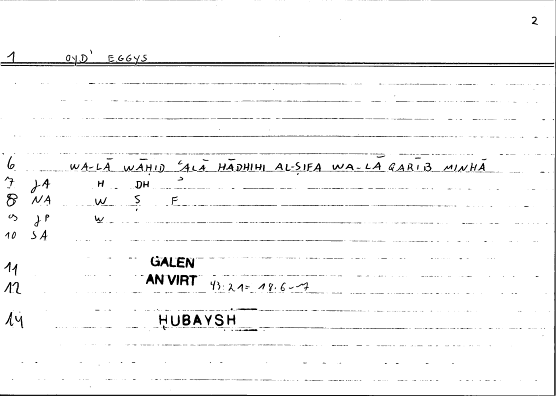 2
1 OYD' EGGYS
6 WA-LĀ WĀḤID ʿALĀ HĀDHIHI AL-ṢIFA WA-LĀ QARĪB MINHĀ
7 JA H DH
8 NA W Ṣ F
9 JP W
10 SA
11 GALEN
12 AN VIRT 43:21= 18.6-7
14 ḤUBAYSH